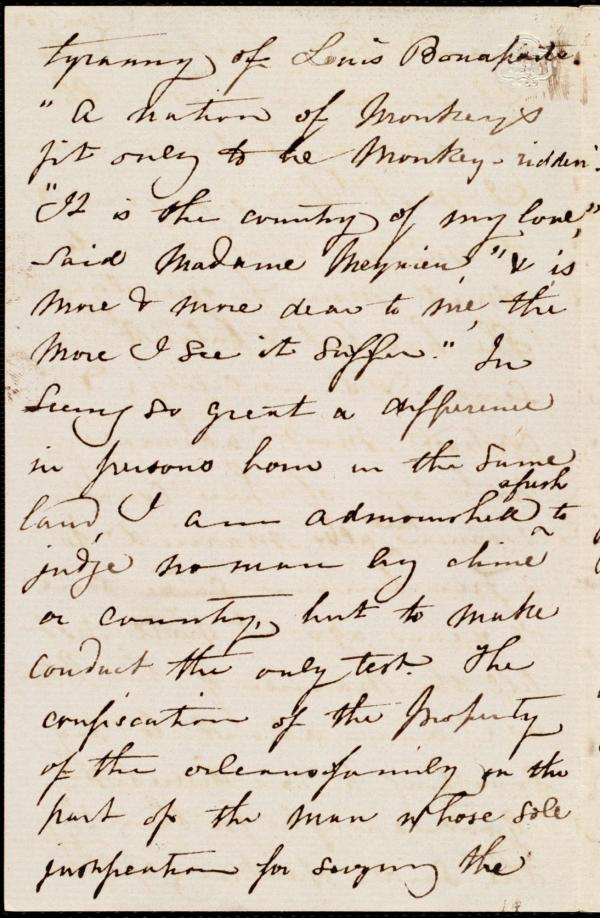 tyranny of Louis Bonaparte.
"A nation of Monkeys
fit only to be Monkey-ridden".
"It is the country of my love,"
said Madame Meynieu, "& is
more & more dear to me, the
more I see it suffer." In
seeing so great a difference
in persons born in the same
land, I am admonished afresh to
judge no man by clime
or country, but to make
conduct the only test. The
confiscation of the Property
of the orleans family, on the
part of the man whose sole
justification for seizing the